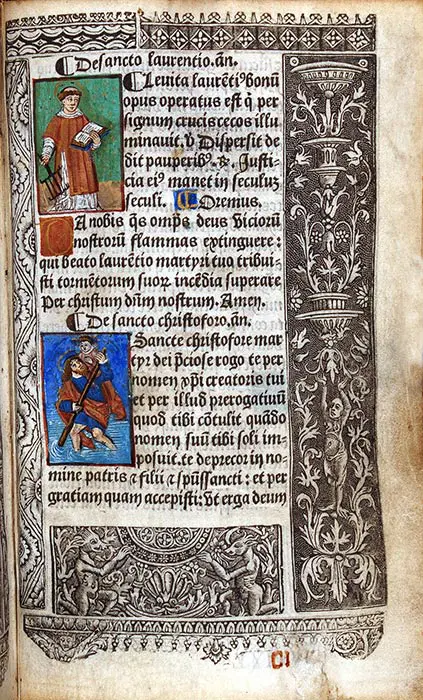 De sancto laurentio. an̄.
Leuita laurēti⁹ bonū
opus operatus est q̄ per
signum crucis cecos illu
minauit. ℣ Dispersit de
dit pauperib⁹. ℟. Justi-
cia ei⁹ manet in seculuz
seculi. Oremus.
DA nobis q̄s om̄ps deus viciorū
nostrorū flammas extinguere:
qui beato laurētio martyri tuo tribui-
sti tormētorum suoꝝ incēdia superare
Per christum dn̄m nostrum. Amen.
De sancto christoforo. an̄.
Sancte christofore mar
tyr dei p̄ciose rogo te per
nomen xp̄i creatoris tui
et per illud prerogatiuū
quod tibi cōtulit quādo
nomen suū tibi soli im-
posuit. te deprecor in no-
mine patris ⁊ filii ⁊ sp̄ussancti: et per
gratiam quam accepisti: vt erga deum
CI